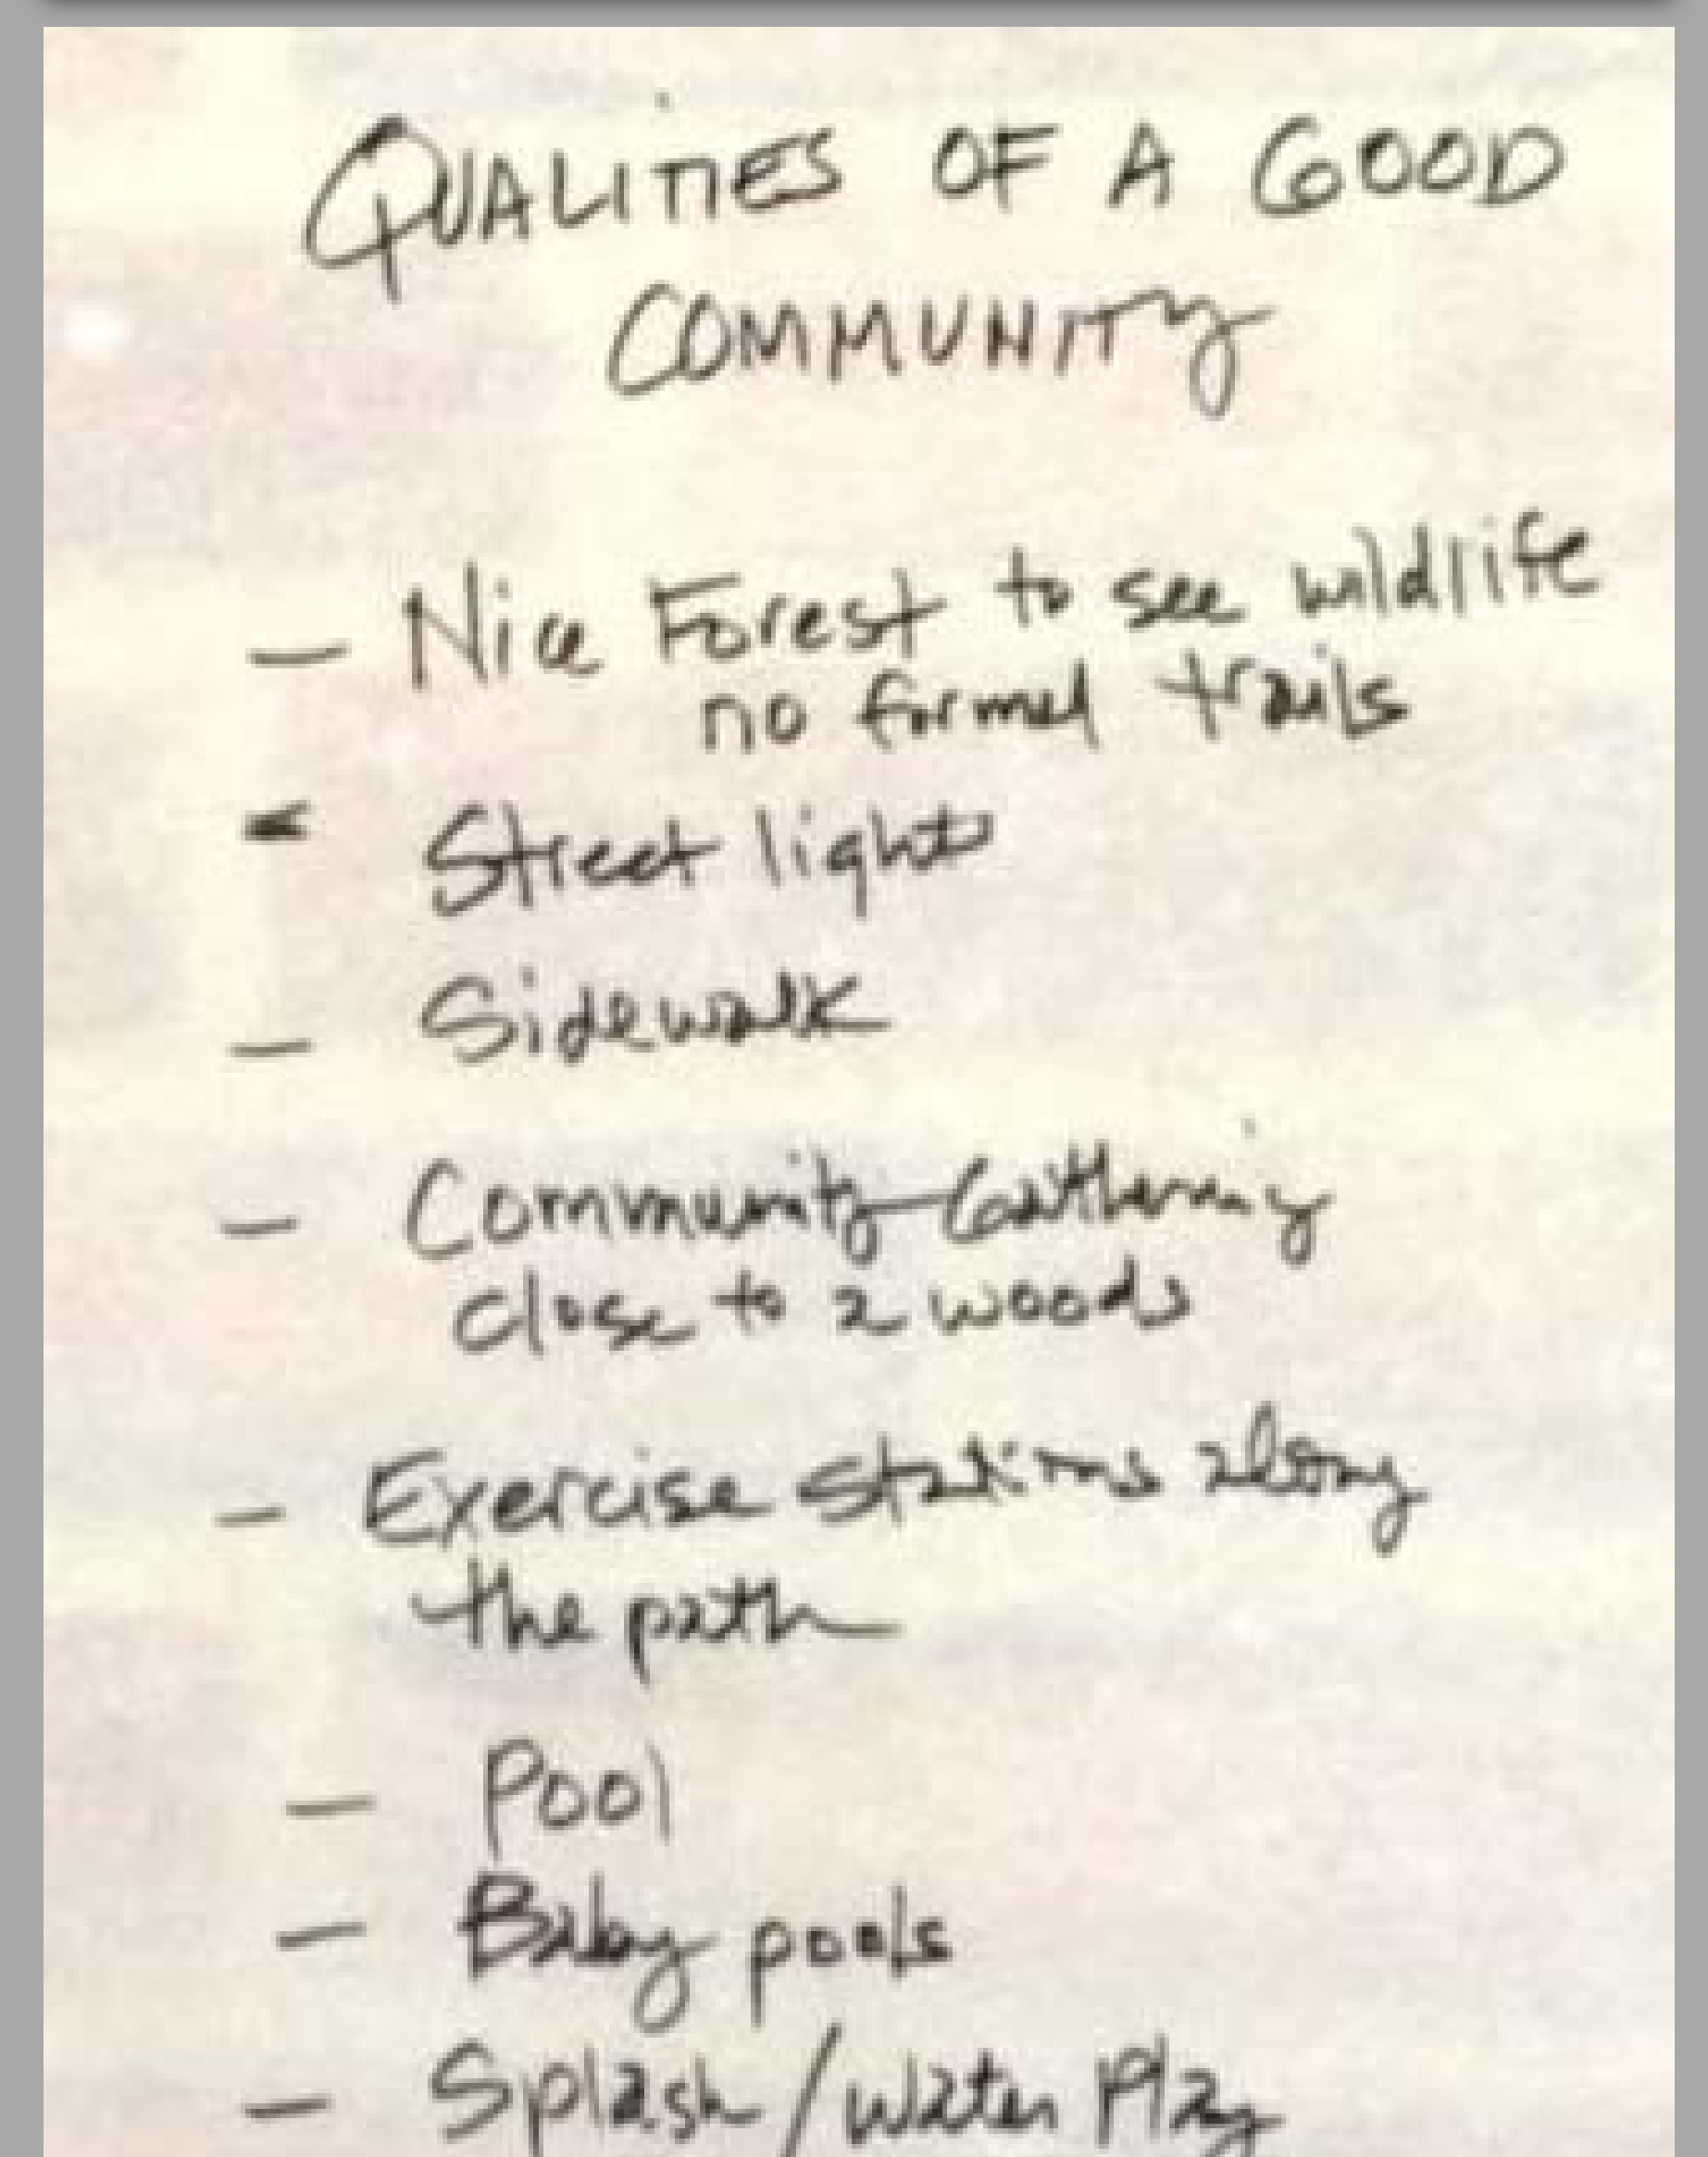 QUALITIES OF A GOOD
COMMUNITY
- Nice Forest to see wildlife
no formal trails
- Street lights
- Sidewalk
- Community Gathering
close to a woods
- Exercise stations along
the path
- Pool
- Baby pools
- Splash/Water Play